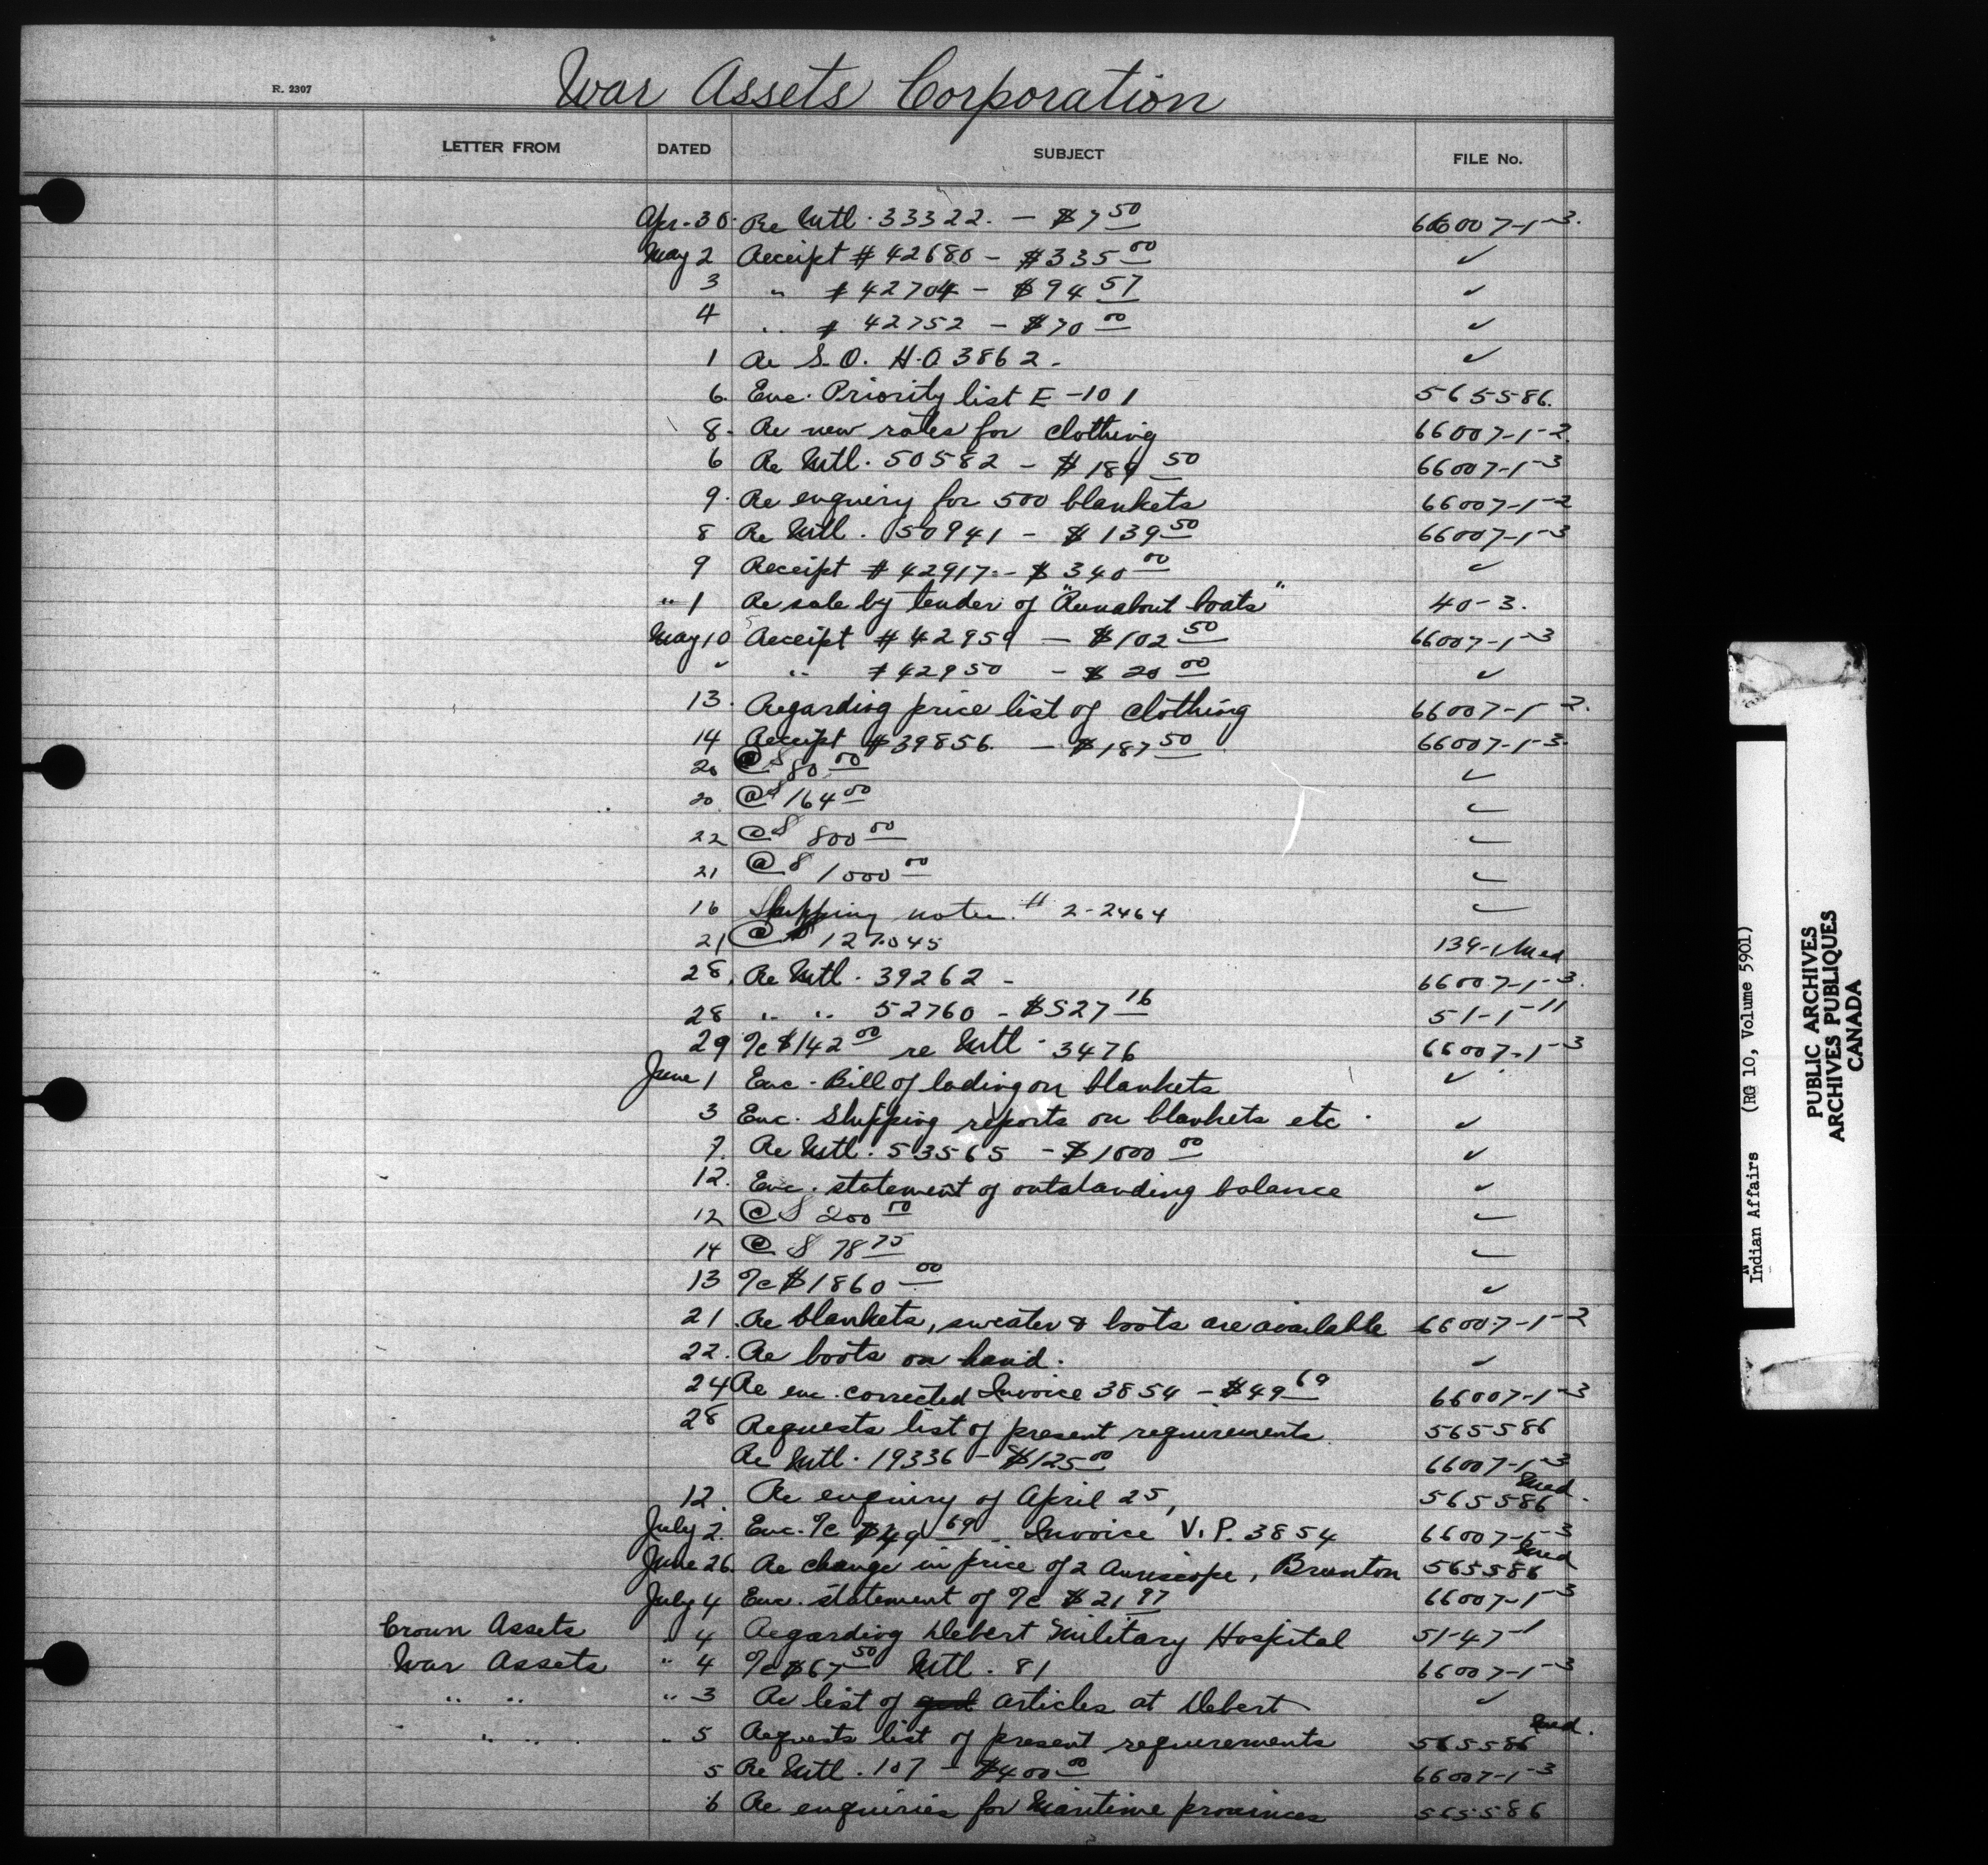 War Assets Corporation
R. 2307
LETTER FROM DATED SUBJECT FILE No.
Apr. 30. Re Mtl. 33322. — $7 50 66007-1-3.
May 2 Receipt # 42680 — $335 00 ✓
3 " # 42704 — $94 57 ✓
4 " # 42752 — $70 00 ✓
1 Re S.O. H.O 3862. ✓
6. Enc. Priority list E-101 565586.
8. Re new rates for clothing 66007-1-2.
6 Re Mtl. 50582 — $189 50 66007-1-3
9. Re enquiry for 500 blankets 66007-1-2
8 Re Mtl. 50941 — $139 50 66007-1-3
9 Receipt # 42917. — $340 00 ✓
" 1 Re sale by tender of "Runabout boats" 40-3.
May 10 Receipt # 42959 — $102 50 66007-1-3
✓ " # 42950 — $20 00 ✓
13. Regarding price list of clothing 66007-1-2.
14 Receipt # 39856. — $187 50 66007-1-3.
20 @ $ 80 00 ✓
20 @ $ 164 00 ✓
22 @ $ 800 00 ✓
21 @ $ 1000 00 ✓
16 Shipping note # 2-2464 ✓
21 @ $ 127.045 139-1 Med
28. Re Mtl. 39262 - 66007-1-3.
28 " " 52760 — $527 16 51-1-11
29 %c $142 00 re Mtl. 3476 66007-1-3
June 1 Enc. Bill of lading on blankets ✓
3 Enc. Shipping reports on blankets etc. ✓
7. Re Mtl. 53565 — $1000 00 ✓
12. Enc. statement of outstanding balance ✓
12 @ $ 200 00 ✓
14 @ $ 78 75 ✓
13 %c $1860 00 ✓
21. Re blankets, sweater & boots are available 66007-1-2
22. Re boots on hand. ✓
24 Re enc. corrected Invoice 3854 — $49 69 66007-1-3
28 Requests list of present requirements 565586
Re Mtl. 19336 — $125 00 66007-1-3
12. Re enquiry of April 25, 565586 Med.
July 2. Enc. %c $49 69 Invoice V.P. 3854 66007-1-3
June 26. Re change in price of 2 Auriscope, Brunton 565586 Med
July 4 Enc. statement of %c $21 97 66007-1-3
Crown Assets " 4 Regarding Debert Military Hospital 51-47-1
War Assets " 4 %c $67 50 Mtl. 81 66007-1-3
" " " 3 Re list of articles at Debert ✓
" " " 5 Requests list of present requirements 565586 Med.
5 Re Mtl. 107 — $400 00 66007-1-3
6 Re enquiries for Maritime provinces 565586
Indian Affairs (RG 10, Volume 5901)
PUBLIC ARCHIVES
ARCHIVES PUBLIQUES
CANADA